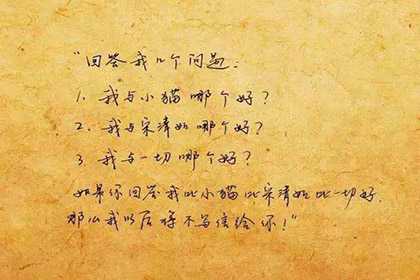 "回答我几个问题：
1. 我与小猫哪个好？
2. 我与宋清如哪个好？
3. 我与一切哪个好？
如果你回答我比小猫比宋清如比一切好，
那么我以后将不写信给你！"